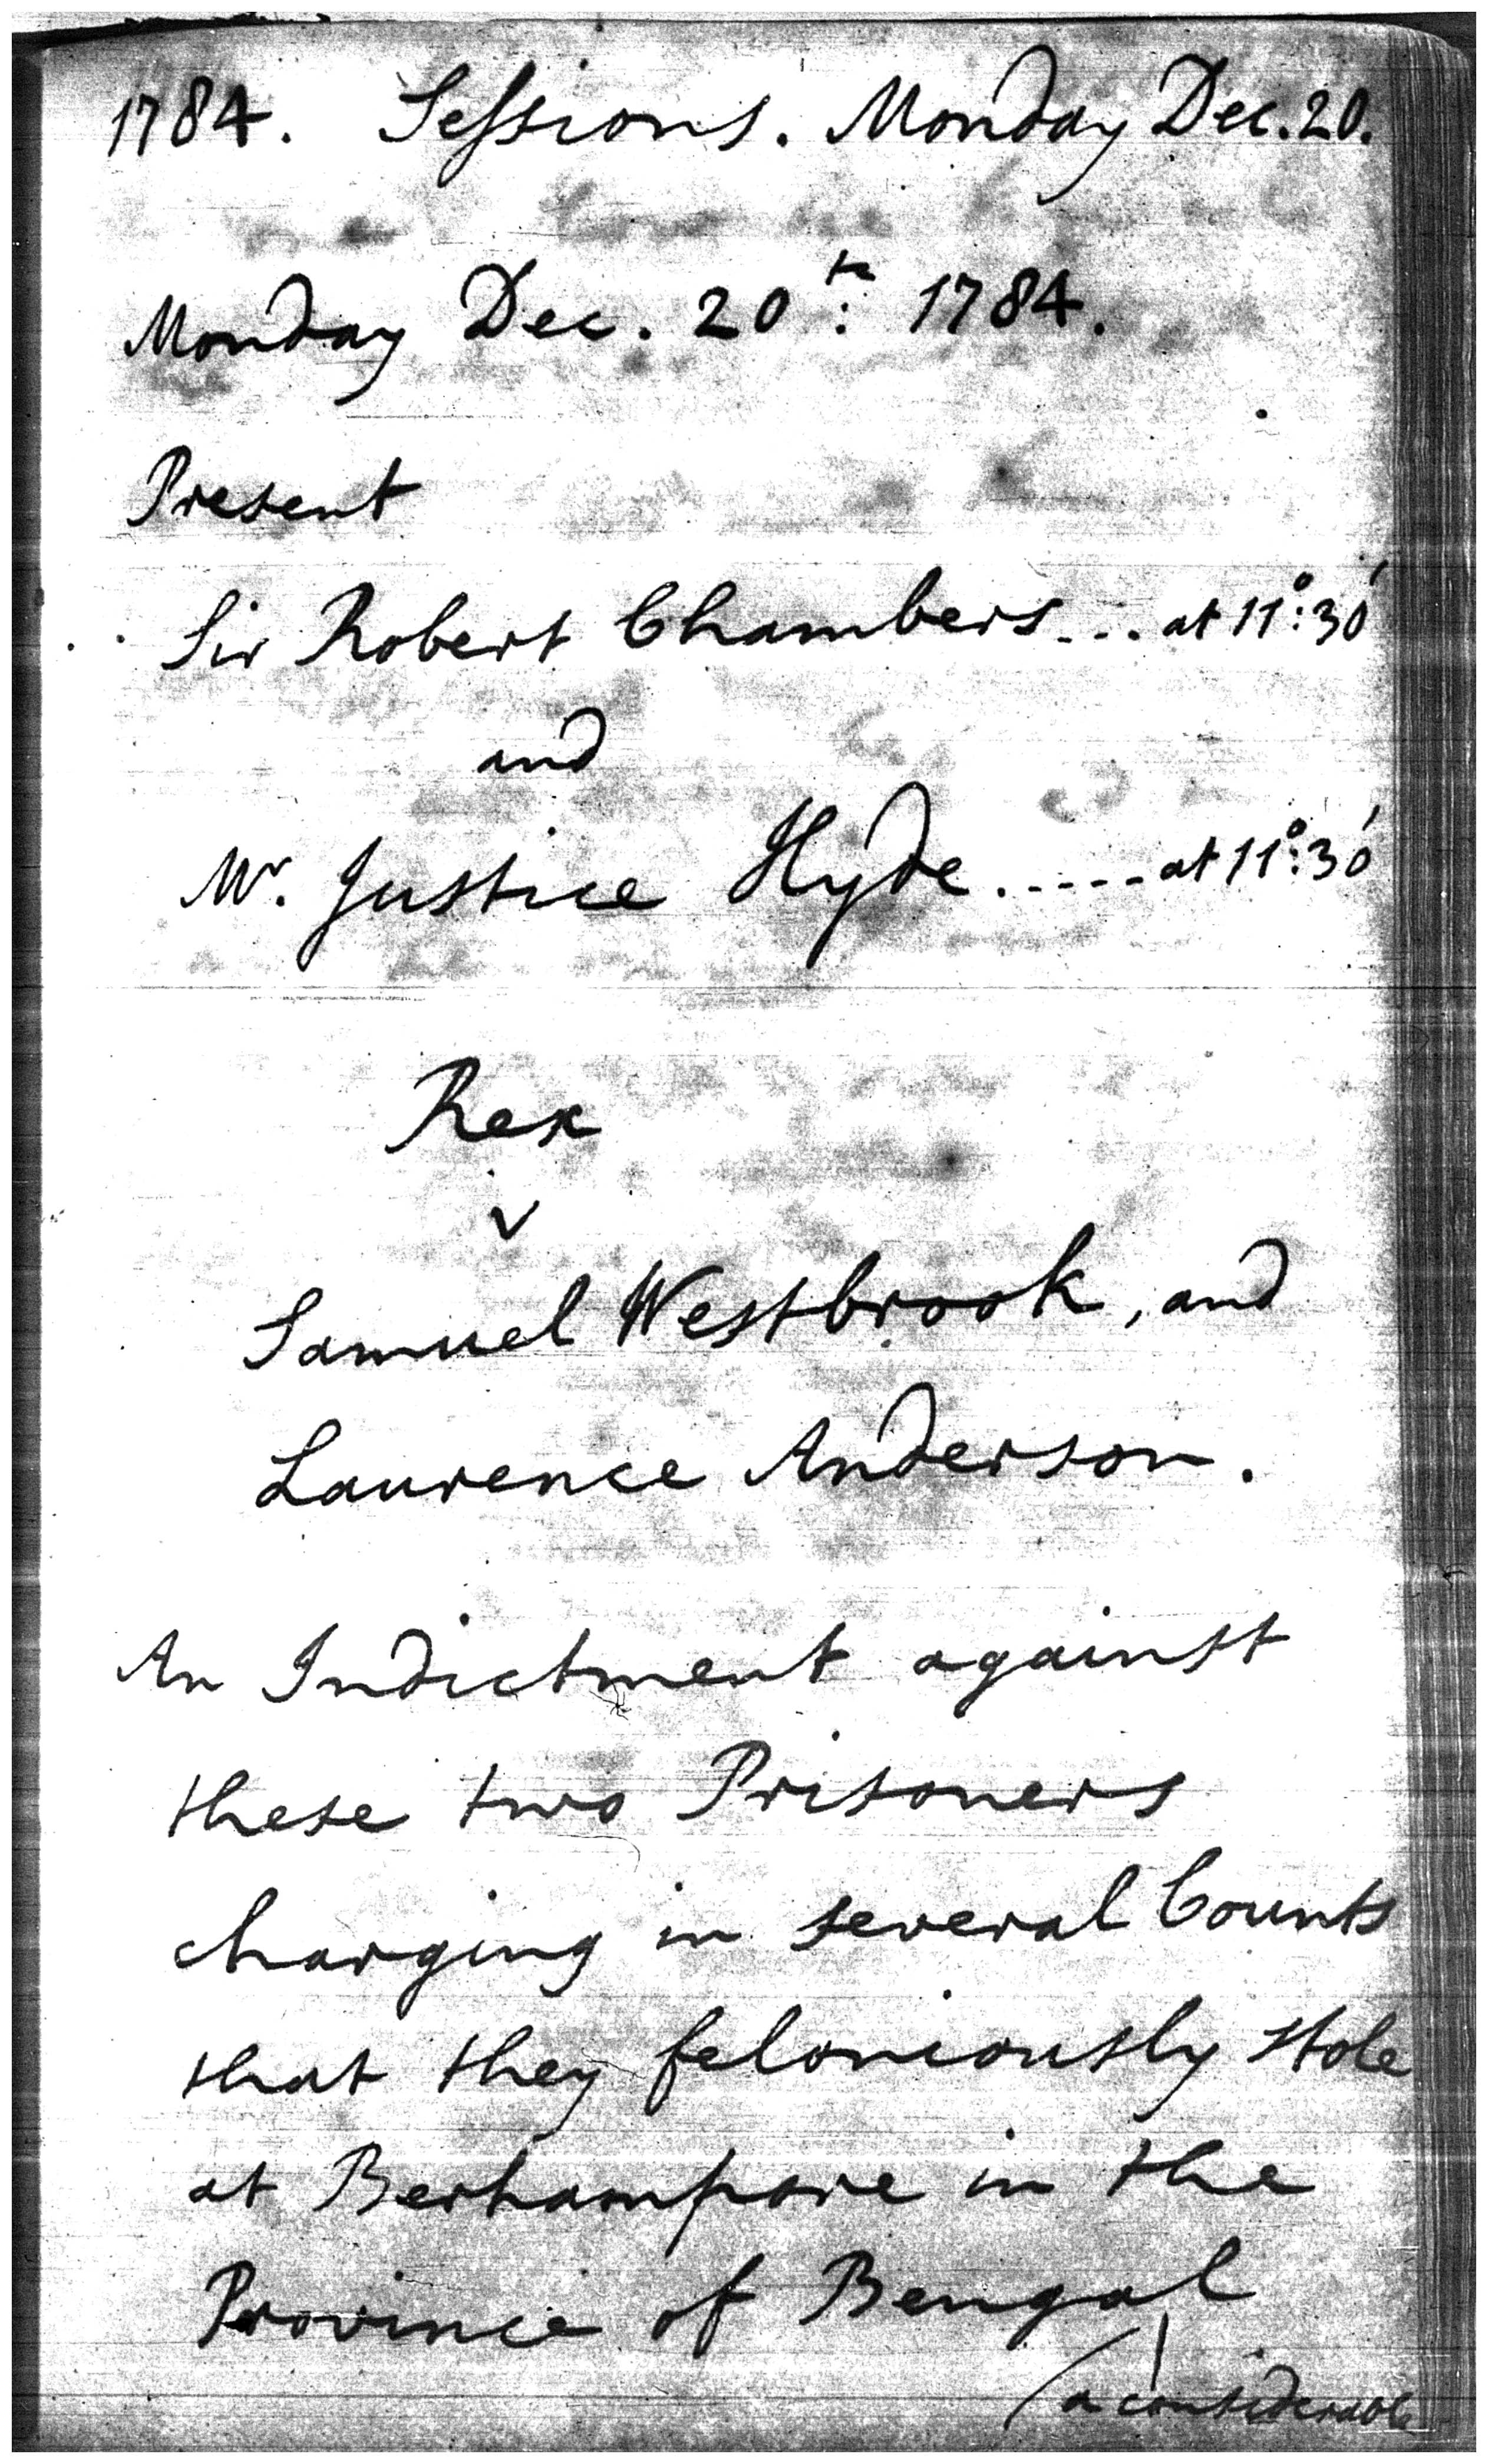 1784. Sessions. Monday Dec. 20.
Monday Dec. 20th: 1784.
Present
Sir Robert Chambers... at 11°:30'
and
Mr. Justice Hyde.----- at 11°:30'
Rex
v
Samuel Westbrook, and
Laurence Anderson.
An Indictment against
these two Prisoners
charging in several Counts
that they feloniously stole
at Berhampore in the
Province of Bengal
(a considerable